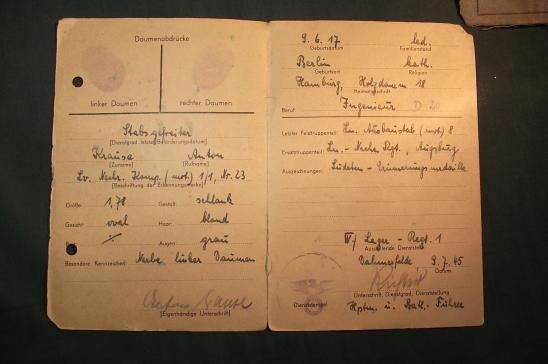 Daumenabdrücke
linker Daumen rechter Daumen
Stabsgefreiter
[Dienstgrad letztes Beförderungsdatum]
Krause Anton
[Zuname] [Rufname]
Lv. Nachr. Komp. (mot.) 1/1, Nr. 23
[Beschriftung der Erkennungsmarke]
Größe 1,78 Gestalt: schlank
Gesicht: oval Haar: blond
Bart: Augen: grau
Besondere Kennzeichen: Narbe linker Daumen
[Eigenhändige Unterschrift]
9. 6. 17 led.
Geburtsdatum Familienstand
Berlin kath.
Geburtsort Religion
Hamburg, Holzdamm 18
Heimatanschrift
Beruf: Ingenieur
Letzter Feldtruppenteil: Ln. Ausbaustab (mot) 8
Ersatztruppenteil: Ln.- Nachr. Rgt., Augsburg
Auszeichnungen: Sudeten - Erinnerungsmedaille
IV/ Lager - Regt. 1
Ausstellende Dienststelle
9. 7. 45
Datum
Unterschrift, Dienstgrad, Dienststellung
Dienststempel Hptm. u. Batl.- Führer